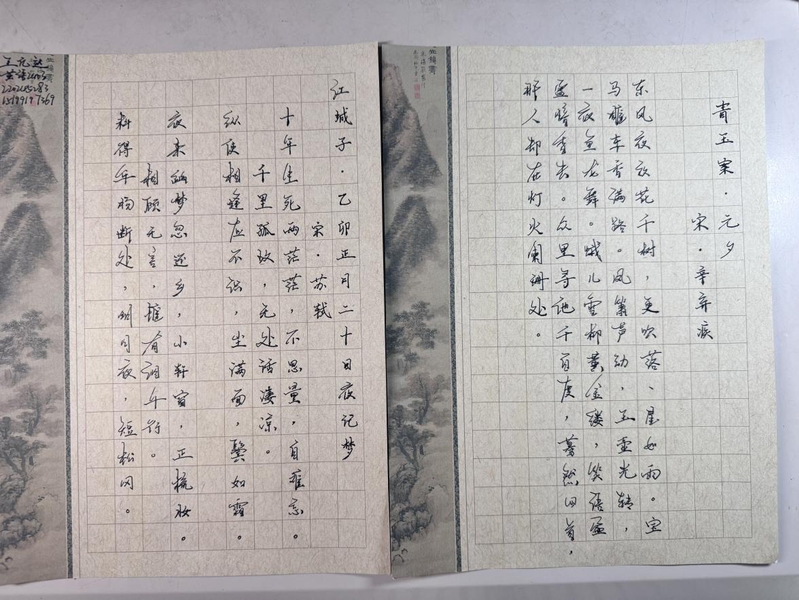 青玉案·元夕
宋·辛弃疾
东风夜放花千树，更吹落、星如雨。宝
马雕车香满路。凤箫声动，玉壶光转，
一夜鱼龙舞。蛾儿雪柳黄金缕，笑语盈
盈暗香去。众里寻他千百度，蓦然回首，
那人却在灯火阑珊处。
江城子·乙卯正月二十日夜记梦
宋·苏轼
十年生死两茫茫，不思量，自难忘。
千里孤坟，无处话凄凉。
纵使相逢应不识，尘满面，鬓如霜。
夜来幽梦忽还乡，小轩窗，正梳妆。
相顾无言，惟有泪千行。
料得年肠断处，明月夜，短松冈。